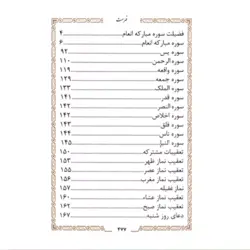 فهرست
فضیلت سوره مبارکه انعام ۴
سوره مبارکه انعام ۶
سوره یس ۹۲
سوره الرحمن ۱۱۰
سوره واقعه ۱۱۹
سوره جمعه ۱۲۹
سوره الملک ۱۳۳
سوره قدر ۱۴۱
سوره النصر ۱۴۲
سوره اخلاص ۱۴۲
سوره فلق ۱۴۳
سوره ناس ۱۴۴
سوره النبأ ۱۴۵
تعقیبات مشترکه ۱۵۰
تعقیب نماز ظهر ۱۵۳
تعقیب نماز عصر ۱۵۵
تعقیب نماز مغرب ۱۵۶
نماز غفیله ۱۵۷
تعقیب نماز عشاء ۱۶۰
تعقیب نماز صبح ۱۶۲
دعای روز شنبه ۱۶۷